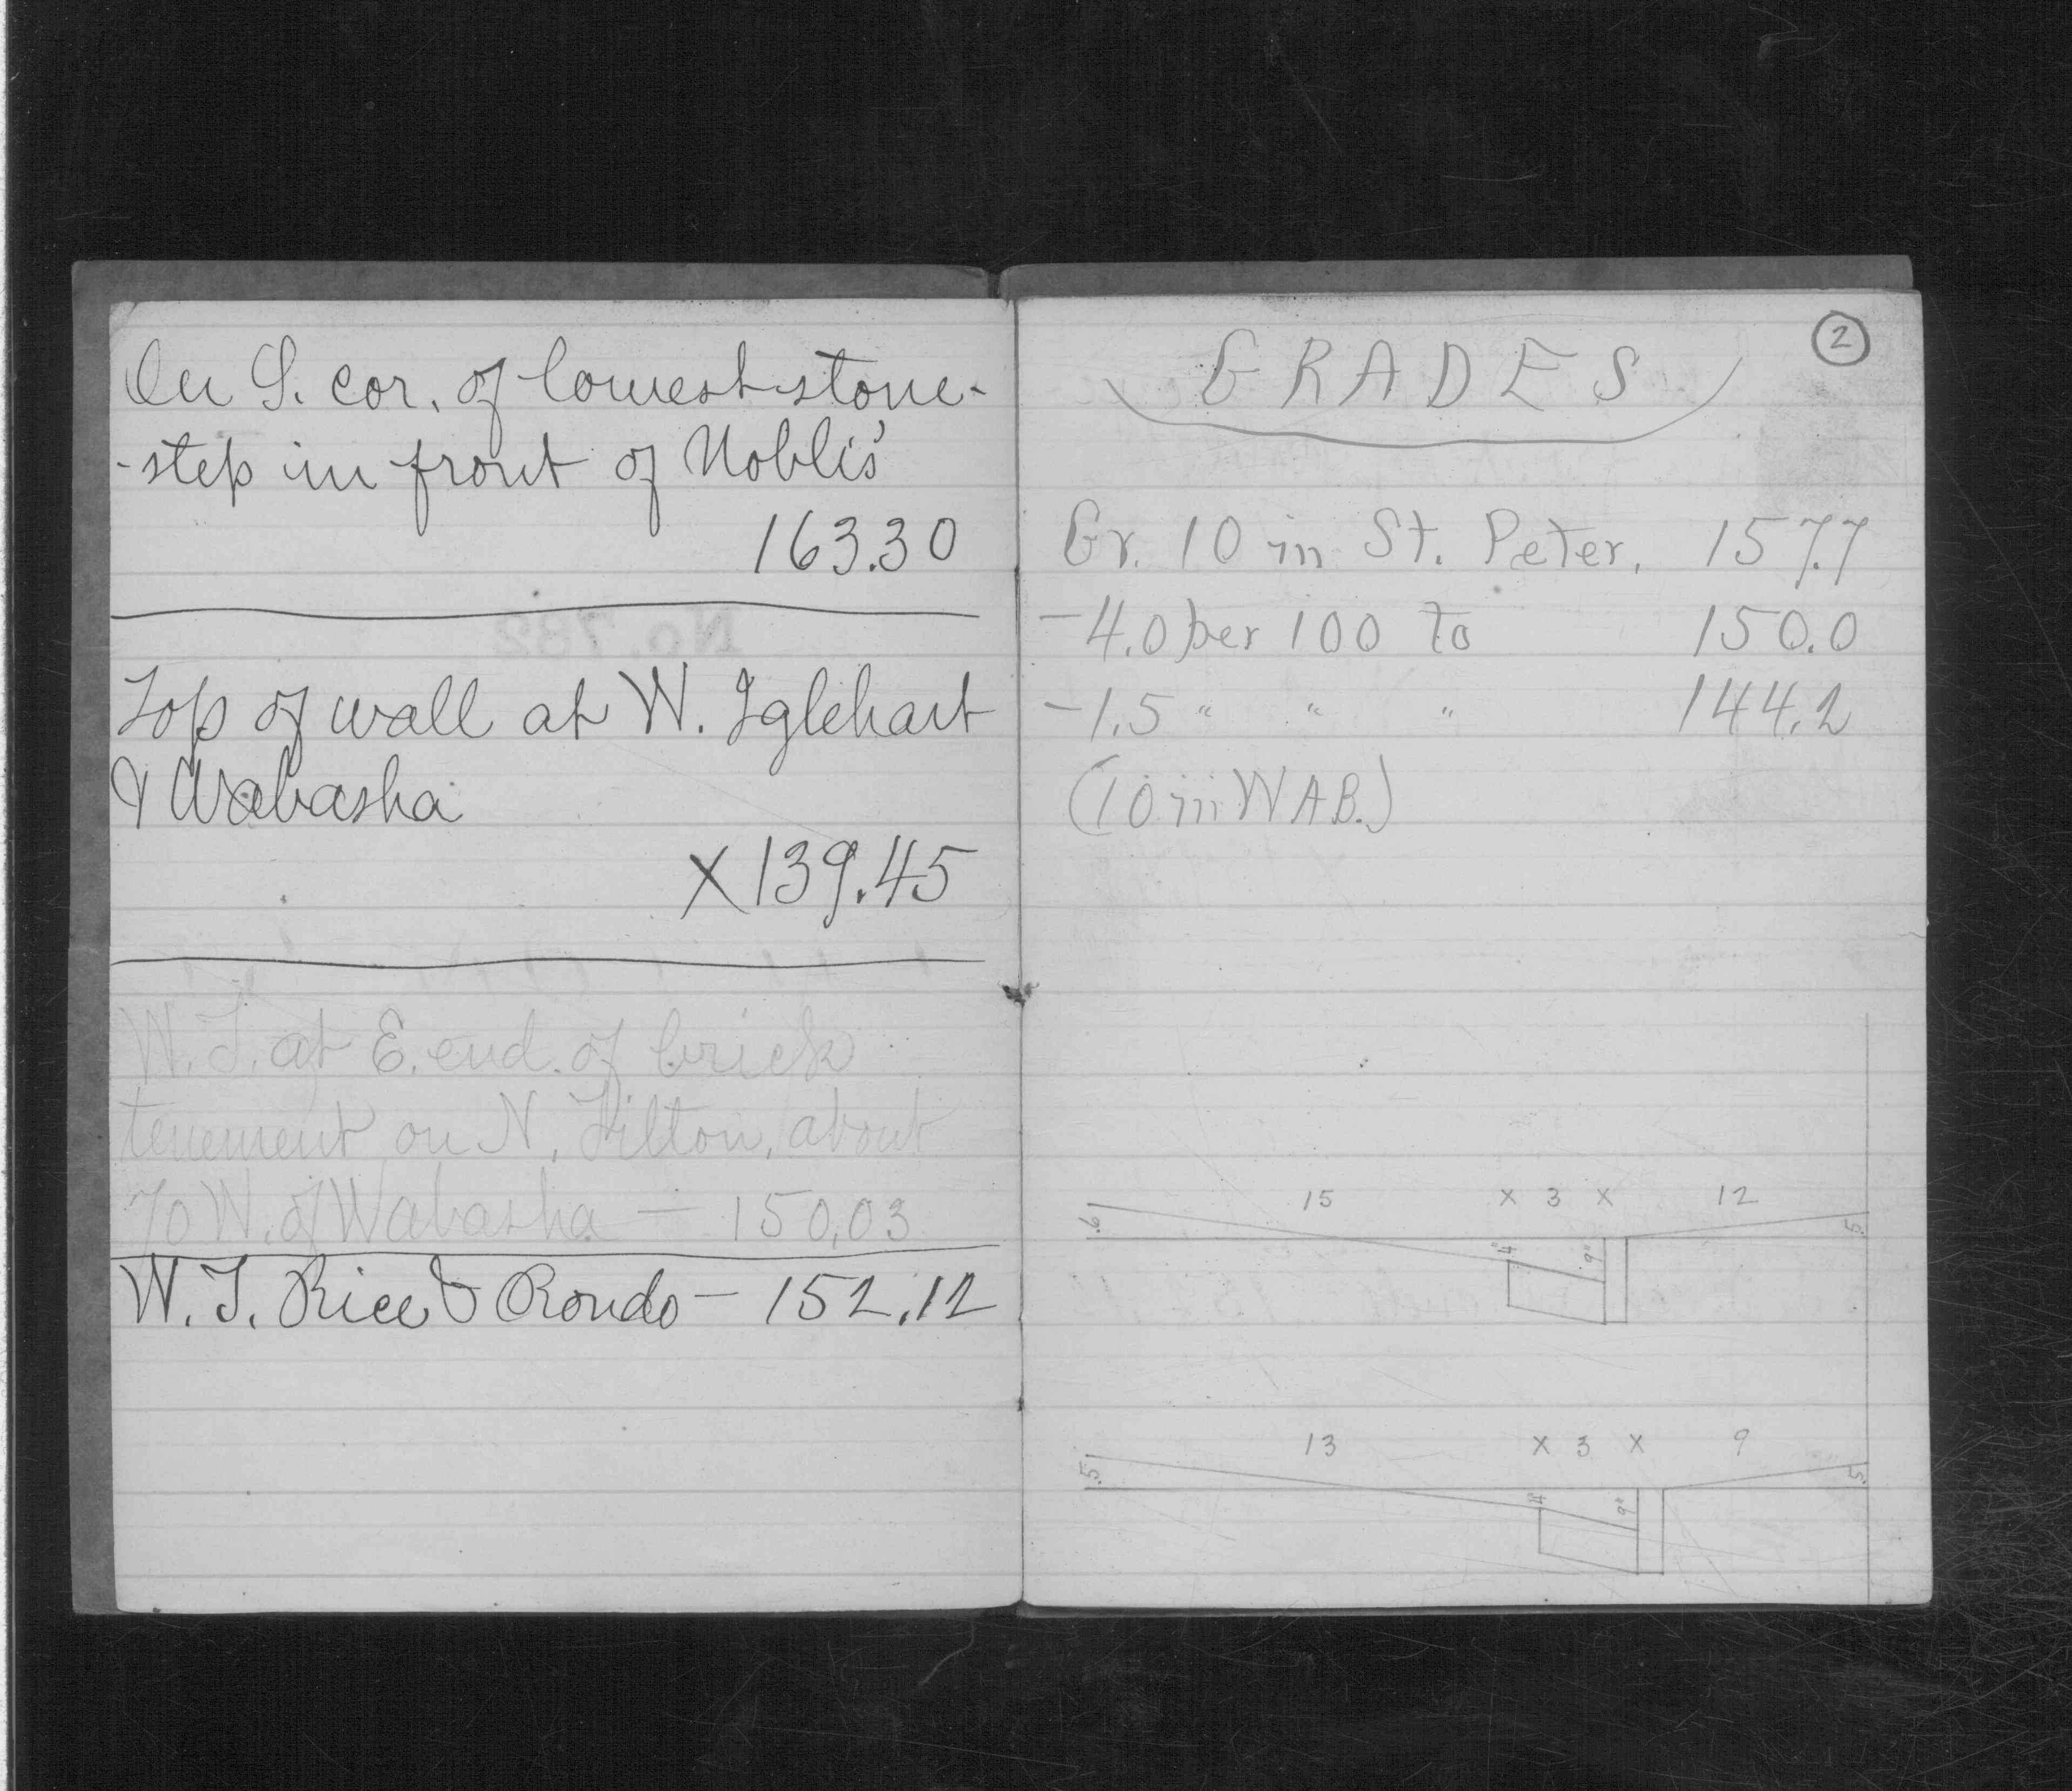 On S. cor. of lowest stone-
-step in front of Noblis'
163.30
No. 782
Top of wall at W. Iglehart
& Wabasha
X 139.45
W. T. at E. end. of brick
tenement on N. Tilton, about
70 W. of Wabasha — 150.03
W. T. Rice & Rondo — 152.12
2
GRADES
Gr. 10 in St. Peter, 157.7
-4.0 per 100 to 150.0
-1.5 " " " 144.2
(10 in WAB.)
15 x 3 x 12
.6 4" 9" .5
13 x 3 x 9
.5 4" 9" .5